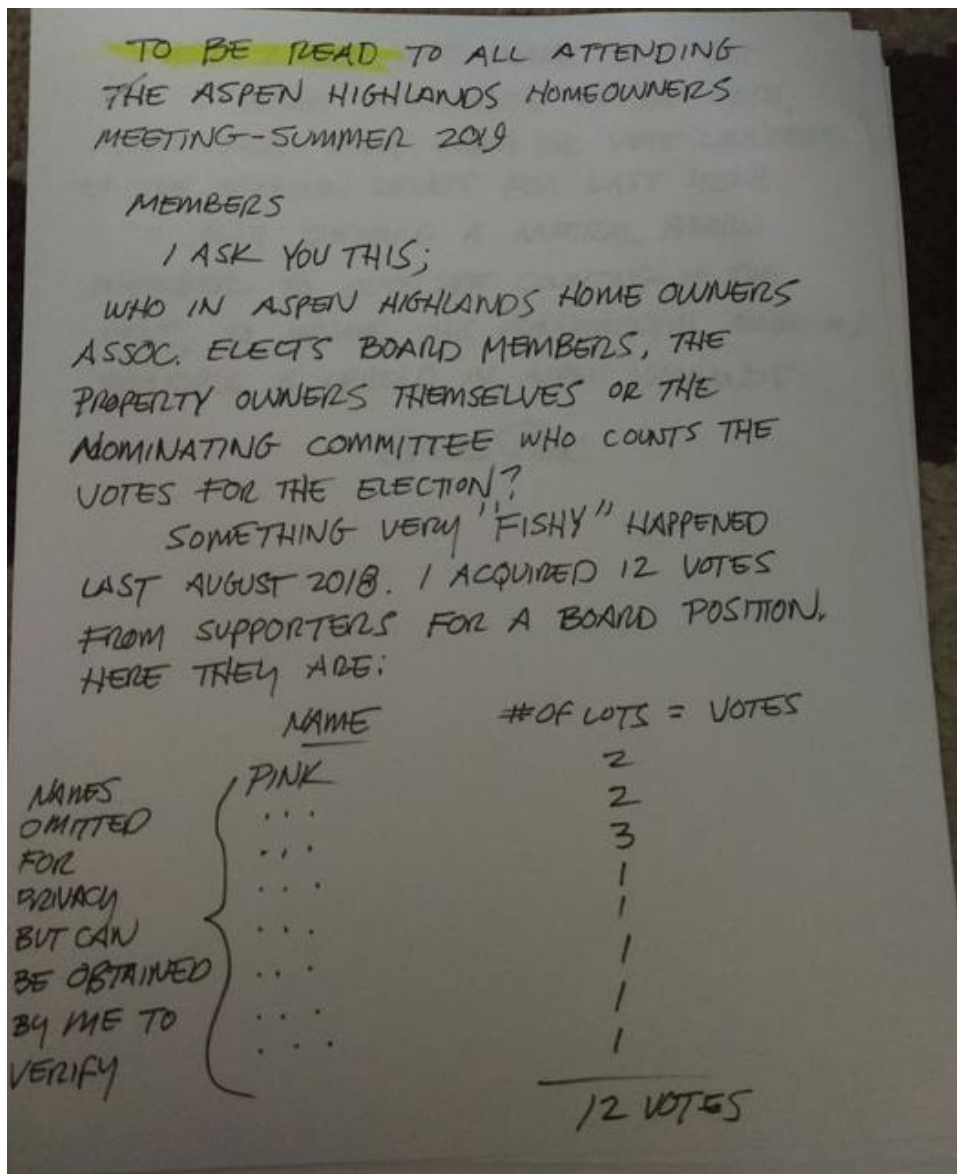 TO BE READ TO ALL ATTENDING
THE ASPEN HIGHLANDS HOMEOWNERS
MEETING-SUMMER 2019
MEMBERS
I ASK YOU THIS;
WHO IN ASPEN HIGHLANDS HOME OWNERS
ASSOC. ELECTS BOARD MEMBERS, THE
PROPERTY OWNERS THEMSELVES OR THE
NOMINATING COMMITTEE WHO COUNTS THE
VOTES FOR THE ELECTION?
SOMETHING VERY "FISHY" HAPPENED
LAST AUGUST 2018. I ACQUIRED 12 VOTES
FROM SUPPORTERS FOR A BOARD POSITION.
HERE THEY ARE:
NAME #OF LOTS = VOTES
PINK 2
... 2
... 3
... 1
... 1
... 1
... 1
... 1
NAMES
OMITTED
FOR
PRIVACY
BUT CAN
BE OBTAINED
BY ME TO
VERIFY
12 VOTES